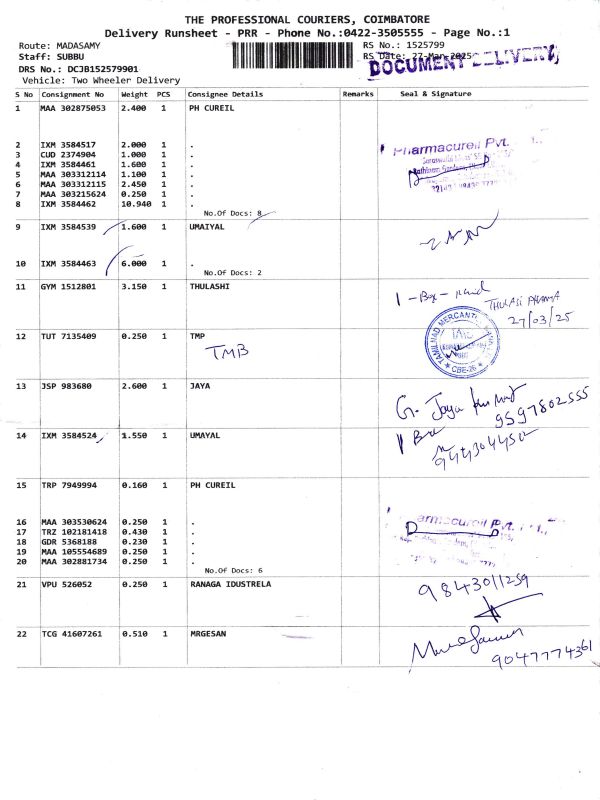 THE PROFESSIONAL COURIERS, COIMBATORE
Delivery Runsheet - PRR - Phone No.:0422-3505555 - Page No.:1
Route: MADASAMY RS No.: 1525799
Staff: SUBBU RS Date: 27-Mar-2025
DOCUMENT DELIVERY
DRS No.: DCJB152579901
Vehicle: Two Wheeler Delivery
S No Consignment No Weight PCS Consignee Details Remarks Seal & Signature
1 MAA 302875053 2.400 1 PH CUREIL
2 IXM 3584517 2.000 1 .
Pharmacureil Pvt.
3 CUD 2374904 1.000 1 .
4 IXM 3584461 1.600 1 .
5 MAA 303312114 1.100 1 .
6 MAA 303312115 2.450 1 .
7 MAA 303215624 0.250 1 .
8 IXM 3584462 10.940 1 .
No.Of Docs: 8
9 IXM 3584539 1.600 1 UMAIYAL
10 IXM 3584463 6.000 1 .
No.Of Docs: 2
11 GYM 1512801 3.150 1 THULASHI
1 - Box -
THULASI PHARMA
27/03/25
12 TUT 7135409 0.250 1 TMP
TMB
TAMILNAD MERCANTILE BANK
CBE-26
13 JSP 983680 2.600 1 JAYA
G. Jaya kumar
9597802555
14 IXM 3584524 1.550 1 UMAYAL
1 Box
9443044512
15 TRP 7949994 0.160 1 PH CUREIL
16 MAA 303530624 0.250 1 .
17 TRZ 102181418 0.430 1 .
18 GDR 5368188 0.230 1 .
19 MAA 105554689 0.250 1 .
20 MAA 302881734 0.250 1 .
No.Of Docs: 6
21 VPU 526052 0.250 1 RANAGA IDUSTRELA
9843011259
22 TCG 41607261 0.510 1 MRGESAN
9047774361